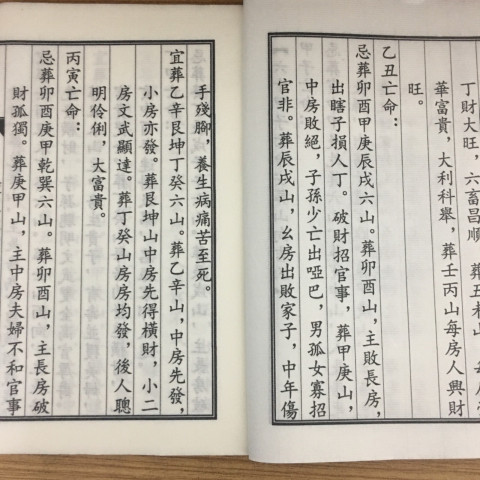 丁財大旺，六畜昌順
華富貴，大利科舉，葬壬丙山每房人興財
旺。
乙丑亡命：
忌葬卯酉甲庚辰戌六山。葬卯酉山，主敗長房，
出瞎子損人丁。破財招官事，葬甲庚山，
中房敗絕，子孫少亡出啞巴，男孤女寡招
官非。葬辰戌山，幺房出敗家子，中年傷
手殘腳，養生病痛苦至死。
宜葬乙辛艮坤丁癸六山。葬乙辛山，中房先發，
小房亦發。葬艮坤山中房先得橫財，小二
房文武顯達。葬丁癸山房房均發，後人聰
明伶俐，大富貴。
丙寅亡命：
忌葬卯酉庚甲乾巽六山。葬卯酉山，主長房破
財孤獨。葬庚甲山，主中房夫婦不和官事